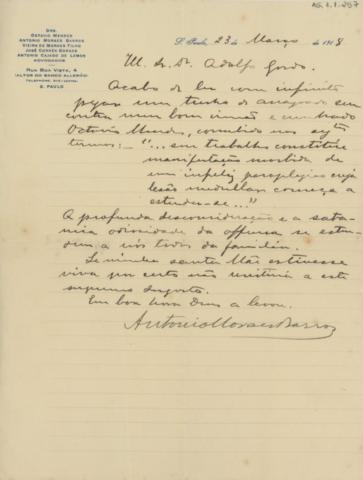 AG. 1.1.257
DRS.
OCTAVIO MENDES
ANTONIO MORAES BARROS
VIEIRA DE MORAES FILHO
JOSÉ CORRÊA BORGES
ANTONIO CAJADO DE LEMOS
ADVOGADOS
RUA BOA VISTA, 4
(ALTOS DO BANCO ALLEMÃO)
S. PAULO
S. Paulo, 23 de Março de 1918
Ill. Sr. Dr. Adolfo Gordo.
Acabo de ler com infinito
pezar um trecho de
contra um bom irmão e cunhado
Octavio Mendes, concebido nos
termos: — "... seu trabalho constitue
manifestação morbida de
um infeliz paraplegico cuja
lesão medullar começa a
estender-se..."
A profunda desconsideração e a
da offensa se esten-
dem a nós todos da familia.
Se minha santa Mãe estivesse
viva por certo não resistiria a este
supremo desgosto.
Em boa hora Deus a levou.
Antonio Moraes Barros